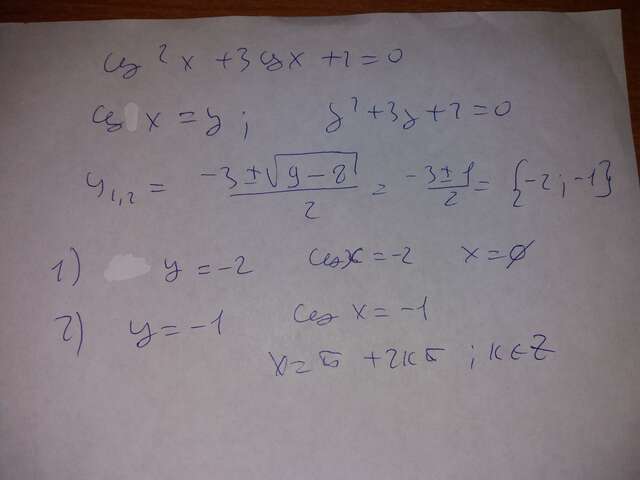 cos²x + 3cosx + 2 = 0
cos x = y; y² + 3y + 2 = 0
y₁,₂ = (-3 ± √(9 - 8))/2 = (-3 ± 1)/2 = {-2; -1}
1) y = -2 cosx = -2 x = ∅
2) y = -1 cos x = -1
x = π + 2kπ; k ∈ Z